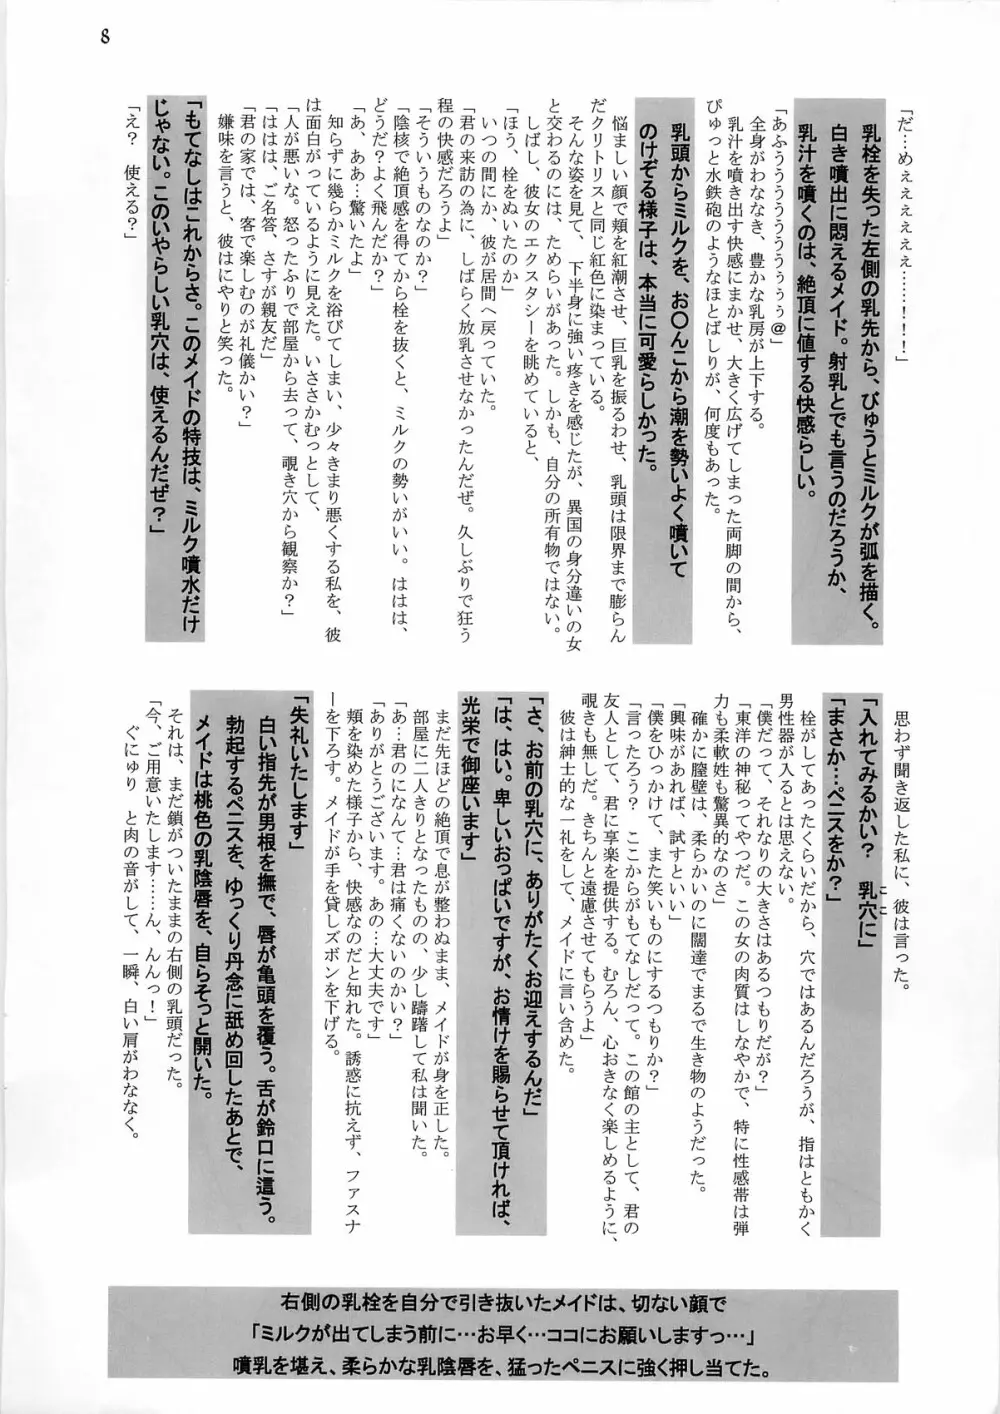 8
「だ…めぇぇぇぇぇぇ………!!!!」
乳栓を失った左側の乳先から、びゅうとミルクが弧を描く。
白き噴出に悶えるメイド。射乳とでも言うのだろうか、
乳汁を噴くのは、絶頂に値する快感らしい。
「あふうううううううぅぅぅ@」
全身がわななき、豊かな乳房が上下する。
乳汁を噴き出す快感にまかせ、大きく広げてしまった両脚の間から、
ぴゅっと水鉄砲のようなほとばしりが、何度もあった。
乳頭からミルクを、お〇んこから潮を勢いよく噴いて
のけぞる様子は、本当に可愛らしかった。
悩ましい顔で頬を紅潮させ、巨乳を振るわせ、乳頭は限界まで膨らん
だクリトリスと同じ紅色に染まっている。
そんな姿を見て、下半身に強い疼きを感じたが、異国の身分違いの女
と交わるのには、ためらいがあった。しかも、自分の所有物ではない。
しばし、彼女のエクスタシーを眺めていると、
「ほう、栓をぬいたのか」
いつの間にか、彼が居間へ戻っていた。
「君の来訪の為に、しばらく放乳させなかったんだぜ。久しぶりで狂う
程の快感だろうよ」
「そういうものなのか?」
「陰核で絶頂感を得てから栓を抜くと、ミルクの勢いがいい。ははは、
どうだ?よく飛んだか?」
「あ、ああ…驚いたよ」
知らずに幾らかミルクを浴びてしまい、少々きまり悪くする私を、彼
は面白がっているように見えた。いささかむっとして、
「人が悪いな。怒ったふりで部屋から去って、覗き穴から観察か?」
「ははは、ご名答、さすが親友だ」
「君の家では、客で楽しむのが礼儀かい?」
嫌味を言うと、彼はにやりと笑った。
「もてなしはこれからさ。このメイドの特技は、ミルク噴水だけ
じゃない。このいやらしい乳穴は、使えるんだぜ?」
「え? 使える?」
思わず聞き返した私に、彼は言った。
「入れてみるかい? 乳穴に」
ここ
「まさか…ペニスをか?」
栓がしてあったくらいだから、穴ではあるんだろうが、指はともかく
男性器が入るとは思えない。
「僕だって、それなりの大きさはあるつもりだが?」
「東洋の神秘ってやつだ。この女の肉質はしなやかで、特に性感帯は弾
力も柔軟姓も驚異的なのさ」
確かに膣壁は、柔らかいのに闊達でまるで生き物のようだった。
「興味があれば、試すといい」
「僕をひっかけて、また笑いものにするつもりか?」
「言ったろう? ここからがもてなしだって。この館の主として、君の
友人として、君に享楽を提供する。むろん、心おきなく楽しめるように、
覗きも無しだ。きちんと遠慮させてもらうよ」
彼は紳士的な一礼をして、メイドに言い含めた。
「さ、お前の乳穴に、ありがたくお迎えするんだ」
「は、はい。卑しいおっぱいですが、お情けを賜らせて頂ければ、
光栄で御座います」
まだ先ほどの絶頂で息が整わぬまま、メイドが身を正した。
部屋に二人きりとなったものの、少し躊躇して私は聞いた。
「あ…君のになんて…君は痛くないのかい?」
「ありがとうございます。あの…大丈夫です」
頬を染めた様子から、快感なのだと知れた。誘惑に抗えず、ファスナ
ーを下ろす。メイドが手を貸しズボンを下げる。
「失礼いたします」
白い指先が男根を撫で、唇が亀頭を覆う。舌が鈴口に這う。
勃起するペニスを、ゆっくり丹念に舐め回したあとで、
メイドは桃色の乳陰唇を、自らそっと開いた。
それは、まだ鎖がついたままの右側の乳頭だった。
「今、ご用意いたします……ん、んんっ!」
ぐにゅり と肉の音がして、一瞬、白い肩がわななく。
右側の乳栓を自分で引き抜いたメイドは、切ない顔で
「ミルクが出てしまう前に…お早く…ココにお願いしますっ…」
噴乳を堪え、柔らかな乳陰唇を、猛ったペニスに強く押し当てた。